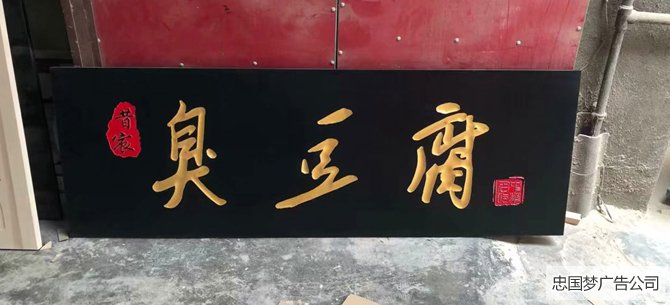 昔家
臭豆腐
忠国梦广告公司